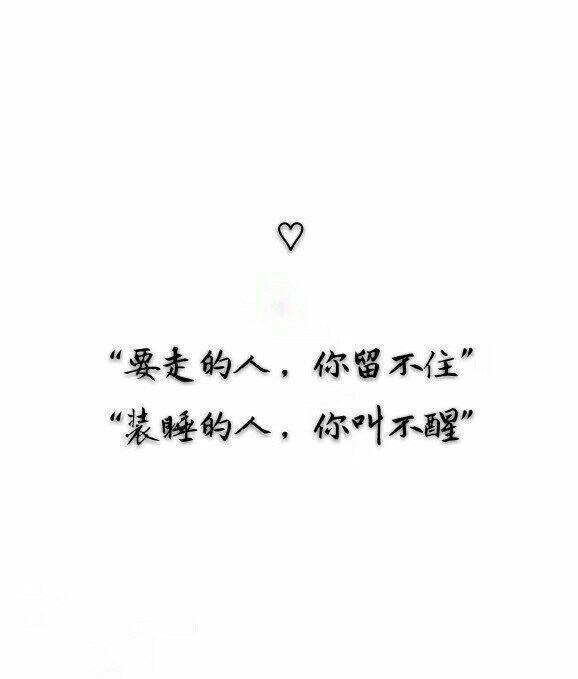 “要走的人，你留不住”
“装睡的人，你叫不醒”